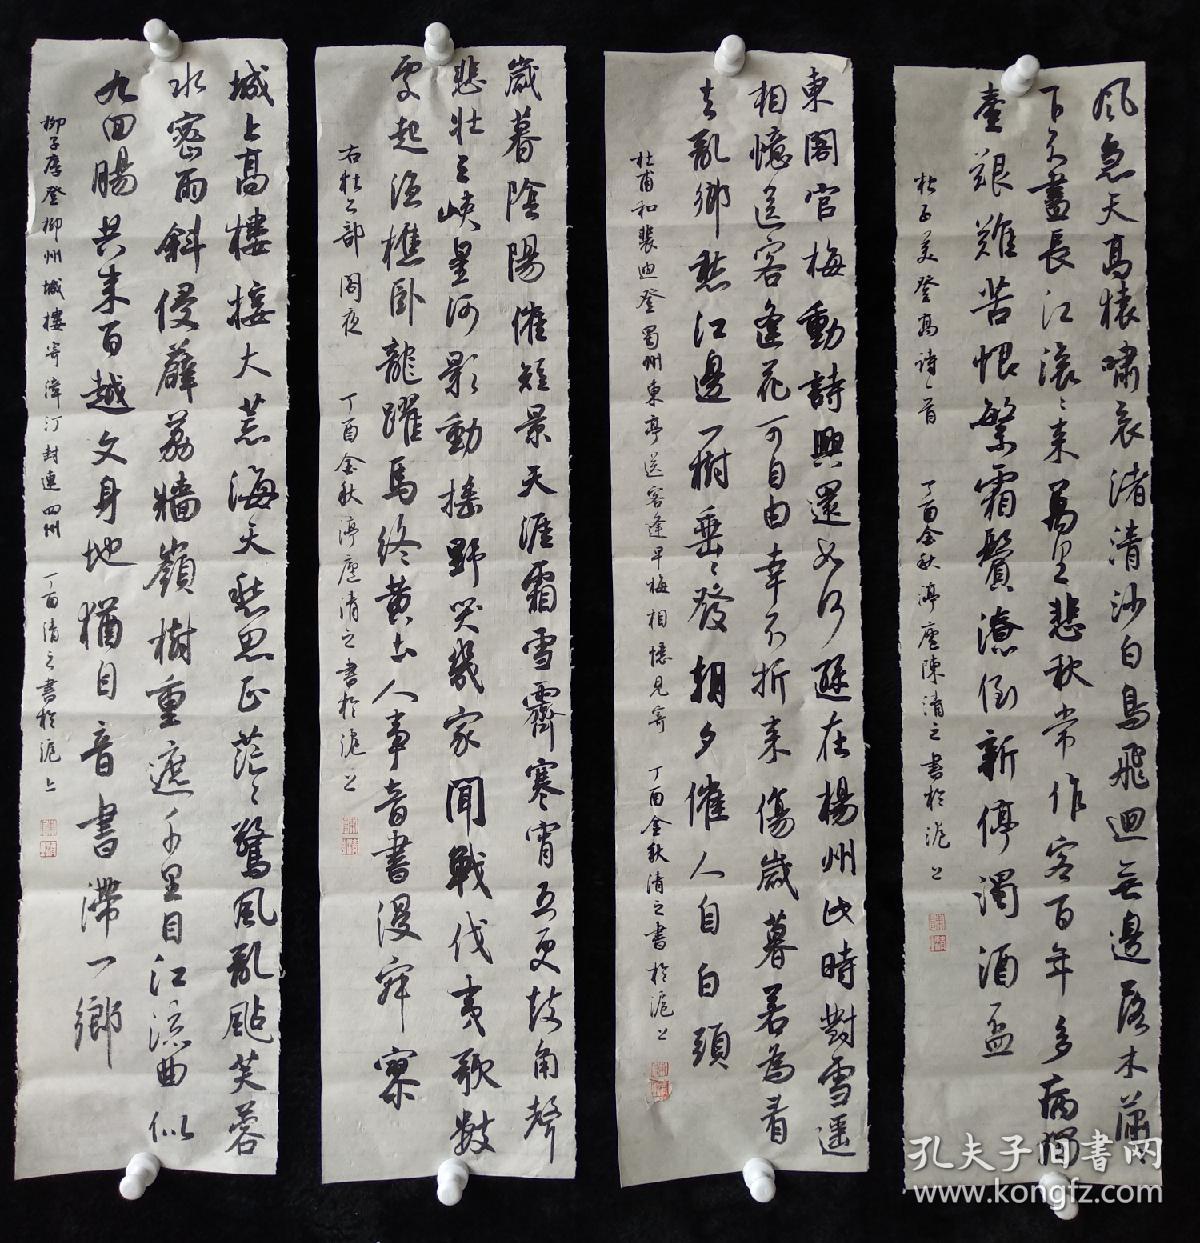 風急天高猿嘯哀渚清沙白鳥飛迴無邊落木蕭蕭
下不盡長江滾々來萬里悲秋常作客百年多病獨
登臺艱難苦恨繁霜鬢潦倒新停濁酒盃
杜子美登高詩一首 丁酉金秋渟廬陳清之書於滬上
東閣官梅動詩興還如何遜在楊州此時對雪遥
相憶送客逢花可自由幸不折来傷歲暮若為看
去亂鄉愁江邊一樹垂々發朝夕催人自白頭
杜甫和裴迪登蜀州東亭送客逢早梅相憶見寄 丁酉金秋清之書於滬上
歲暮陰陽催短景天涯霜雪霽寒宵五更鼓角聲
悲壯三峽星河影動搖野哭幾家聞戰伐夷歌數
處起漁樵卧龍躍馬終黄土人事音書漫寂寥
右杜工部閣夜 丁酉金秋渟廬清之書於滬上
城上高樓接大荒海天愁思正茫々驚風亂颭芙蓉
水密雨斜侵薜荔牆嶺樹重遮千里目江流曲似
九回腸共来百越文身地猶自音書滯一鄉
柳子厚登柳州城樓寄漳汀封連四州 丁酉清之書於滬上
孔夫子旧书网
www.kongfz.com